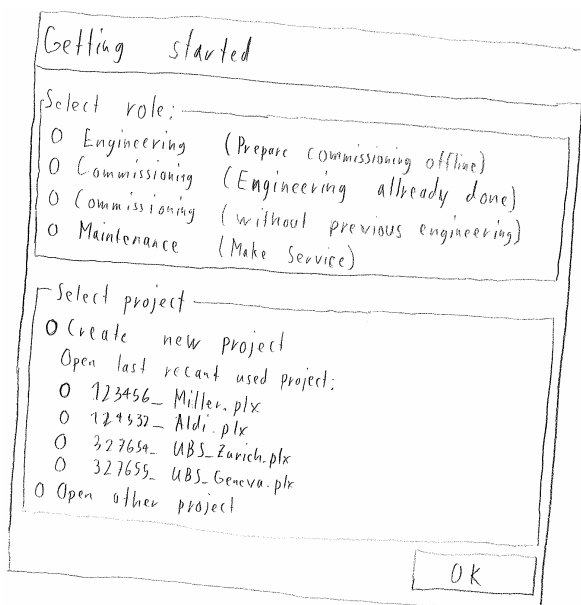 Getting started
Select role:
O Engineering (Prepare commissioning offline)
O Commissioning (Engineering allready done)
O Commissioning (without previous engineering)
O Maintenance (Make Service)
Select project
O Create new project
Open last recant used project:
O 123456_ Miller.plx
O 124532_ Aldi.plx
O 327654_ UBS_Zurich.plx
O 327655_ UBS_Geneva.plx
O Open other project
OK